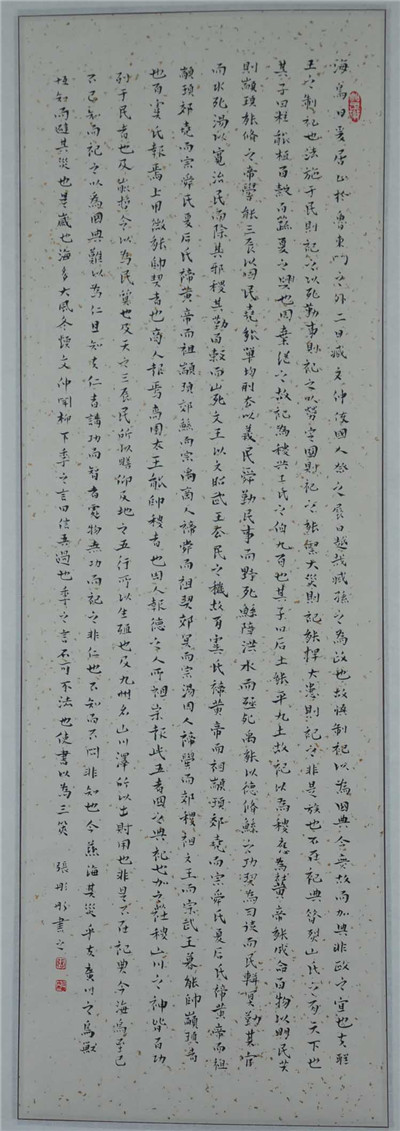 海鳥曰爰居止於魯東門之外二日臧文仲使國人祭之展曰越哉臧孫之為政也故慎制祀以為國典今無故而加典非政之宜也夫聖
王之制祀也法施于民則祀之以死勤事則祀之以勞定國則祀之能禦大災則祀能捍大患則祀之非是族也不在祀典昔烈山氏之有天下也
其子曰柱能植百穀百蔬夏之興也周棄繼之故祀為稷共工氏之伯九有也其子曰后土能平九土故祀以為稷為黃帝能成命百物以明民共
則顓頊能修之帝嚳能三辰以固民堯能單均刑法以義民舜勤民事而野死鯀障洪水而殛死禹能以德修鯀之功契為司徒而民輯冥勤其官
而水死湯以寬治民而除其邪稷其勤百穀而山死文王以文昭武王去民之穢故有虞氏禘黃帝而祖顓頊郊堯而宗舜氏夏后氏禘黃帝而祖
顓頊郊堯而宗舜氏夏后氏禘黃帝而祖顓頊郊鯀而宗禹商人禘舜而祖契郊冥而宗湯周人禘嚳而郊稷祖文王而宗武王幕能帥顓頊者
也有虞氏報焉上甲微能帥契者也商人報焉高圉太王能帥稷者也周人報德之人所祖宗報此五者國之典祀也加之社稷山川之神皆有功
列于民者也及前哲令以為民質也及天之三辰民所以瞻仰及地之五行所以生殖也及九州名山川澤所以出財用也非是不在祀典今海鳥至己
不己知而祀之以為國典難以為仁且知夫仁者講功而智者處物無功而祀之非仁也不知而不問非知也今茲海其災乎夫廣川之鳥獸
恒知而避其災也是歲也海多大風冬煖文仲聞柳下季之言曰信吾過也季之言不可不法也使書以為三筴 張彤彤書之